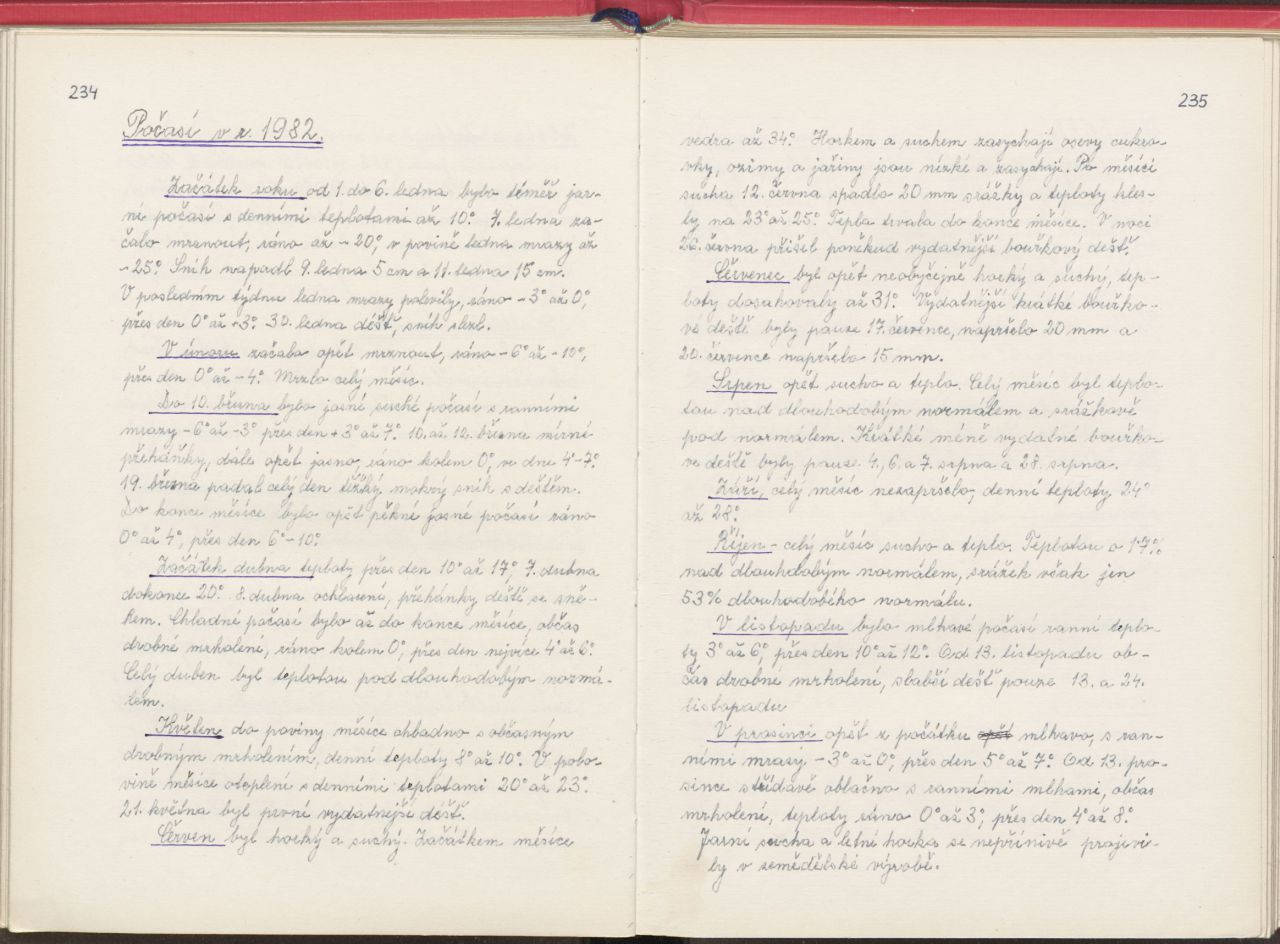 234
Počasí v r. 1982.
Začátek roku od 1. do 6. ledna bylo téměř jar-
ní počasí s denními teplotami až 10°. 7. ledna za-
čalo mrznout, ráno až -20°, v povině ledna mrazy až
-25°. Sníh napadl 9. ledna 5 cm a 11. ledna 15 cm.
V posledním týdnu ledna mrazy polevily, ráno -3° až 0°,
přes den 0° až +3°. 30. ledna déšť, sníh slezl.
V únoru začalo opět mrznout, ráno -6° až -10°,
přes den 0° až -4°. Mrzlo celý měsíc.
Do 10. března bylo jasné suché počasí s ranními
mrazy -6° až -3° přes den +3° až 7°. 10. až 12. března mírné
přeháňky, dále opět jasno, ráno kolem 0°, ve dne 4°-7°.
19. března padal celý den těžký, mokrý sníh s deštěm.
Do konce měsíce bylo opět pěkné jasné počasí ráno
0° až 4°, přes den 6°-10°.
Začátek dubna teploty přes den 10° až 17°, 7. dubna
dokonce 20°. 8. dubna ochlazení, přeháňky deště se sně-
hem. Chladné počasí bylo až do konce měsíce, občas
drobné mrholení, ráno kolem 0°, přes den nejvíce 4° až 6°.
Celý duben byl teplotou pod dlouhodobým normá-
lem.
Květen do poviny měsíce chladno s občasným
drobným mrholením, denní teploty 8° až 10°. V polo-
vině měsíce oteplení s denními teplotami 20° až 23°.
21. května byl první vydatnější déšť.
Červen byl horký a suchý. Začátkem měsíce
235
vedra až 34°. Horkem a suchem zasychají osevy cukro-
vky, ozimy a jařiny jsou nízké a zasychají. Po měsíci
sucha 12. června spadlo 20 mm srážky a teploty kles-
ly na 23° až 25°. Tepla trvala do konce měsíce. V noci
26. června přišel poněkud vydatnější bouřkový déšť.
Červenec byl opět neobyčejně horký a suchý, tep-
loty dosahovaly až 31°. Vydatnější krátké bouřko-
vé deště byly pouze 17. července, napršelo 20 mm a
20. července napršelo 15 mm.
Srpen opět sucho a teplo. Celý měsíc byl teplo-
tou nad dlouhodobým normálem a srážkově
pod normálem. Krátké méně vydatné bouřko-
ve deště byly pouze 4., 6. a 7. srpna a 28. srpna.
Září, celý měsíc nezapršelo, denní teploty 24°
až 28°.
Říjen - celý měsíc sucho a teplo. Teplotou o 1.7%
nad dlouhdobým normálem, srážek však jen
53% dlouhodobého normálu.
V listopadu bylo mlhavé počasí ranní teplo-
ty 3° až 6°, přes den 10° až 12°. Od 13. listopadu ob-
čas drobné mrholení, slabší déšť pouze 13. a 24.
listopadu
V prosinci opět z počátku opět mlhavo, s ran-
ními mrazy -3° až 0°, přes den 5° až 7°. Od 13. pro-
since střídavě oblačno s ranními mlhami, občas
mrholení, teploty ráno 0° až 3°, přes den 4° až 8°.
Jarní sucha a letní horka se nepříznivě projevi-
ly v zemědělské výrobě.